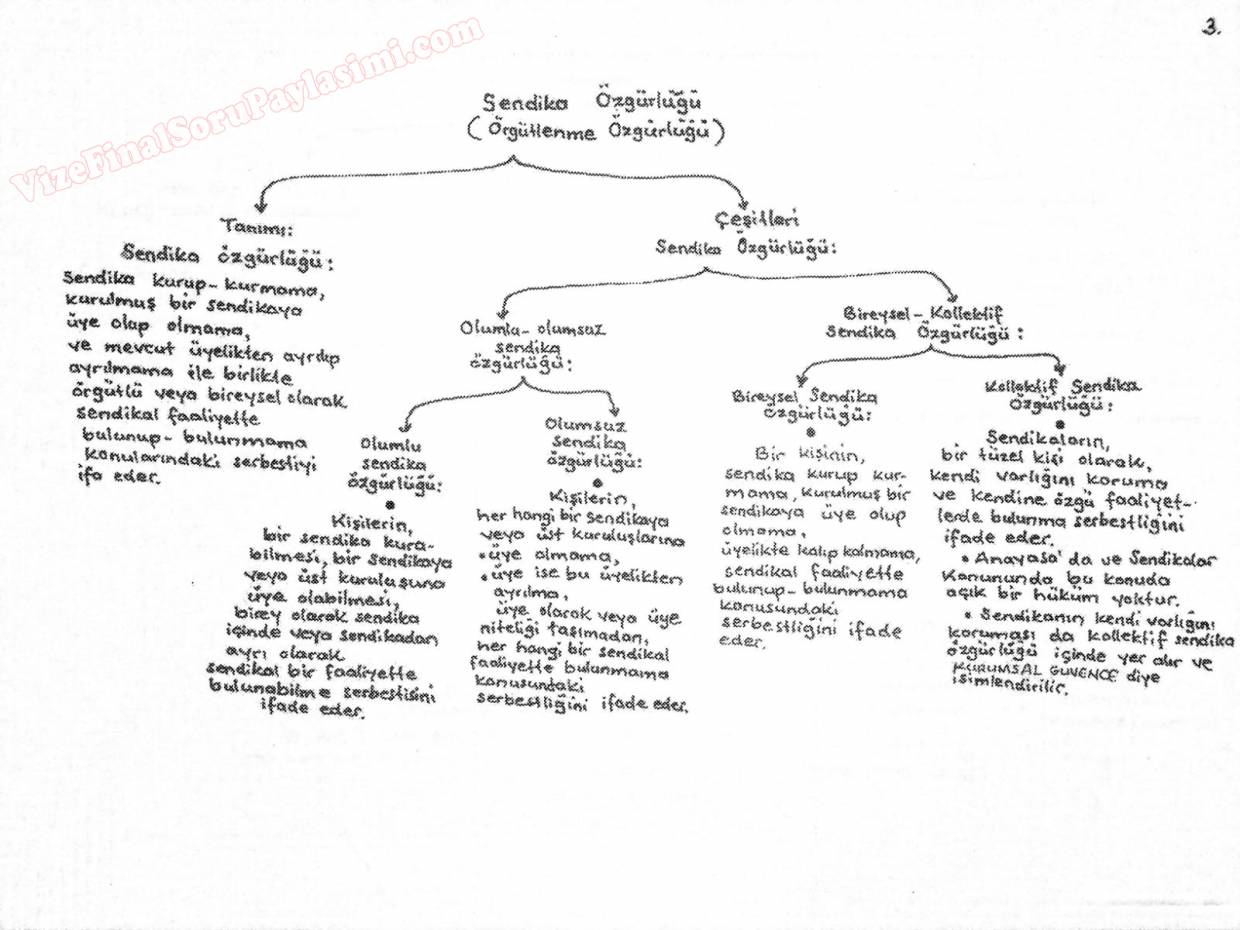 3.
VizeFinalSoruPaylasimi.com
Sendika Özgürlüğü
(Örgütlenme Özgürlüğü)
Tanımı:
Sendika özgürlüğü:
Sendika kurup-kurmama,
kurulmuş bir sendikaya
üye olup olmama,
ve mevcut üyelikten ayrılıp
ayrılmama ile birlikte
örgütlü veya bireysel olarak
sendikal faaliyette
bulunup-bulunmama
konularındaki serbestiyi
ifa eder.
Çeşitleri
Sendika Özgürlüğü:
Olumlu-olumsuz
sendika
özgürlüğü:
Olumlu
sendika
özgürlüğü:
• Kişilerin,
bir sendika kura-
bilmesi, bir sendikaya
veya üst kuruluşuna
üye olabilmesi,
birey olarak sendika
içinde veya sendikadan
ayrı olarak
sendikal bir faaliyette
bulunabilme serbestisini
ifade eder.
Olumsuz
sendika
özgürlüğü:
• Kişilerin,
her hangi bir sendikaya
veya üst kuruluşlarına
• üye olmama,
• üye ise bu üyelikten
ayrılma,
üye olarak veya üye
niteliği taşımadan,
her hangi bir sendikal
faaliyette bulunmama
konusundaki
serbestliğini ifade eder.
Bireysel-Kollektif
Sendika Özgürlüğü:
Bireysel Sendika
Özgürlüğü:
• Bir kişinin,
sendika kurup kur-
mama, kurulmuş bir
sendikaya üye olup
olmama,
üyelikte kalıp kalmama,
sendikal faaliyette
bulunup-bulunmama
konusundaki
serbestliğini ifade
eder.
Kollektif Sendika
Özgürlüğü:
• Sendikaların,
bir tüzel kişi olarak,
kendi varlığını koruma
ve kendine özgü faaliyet-
lerde bulunma serbestliğini
ifade eder.
• Anayasa'da ve Sendikalar
Kanununda bu konuda
açık bir hüküm yoktur.
• Sendikanın kendi varlığını
koruması da kollektif sendika
özgürlüğü içinde yer alır ve
KURUMSAL GÜVENCE diye
isimlendirilir.